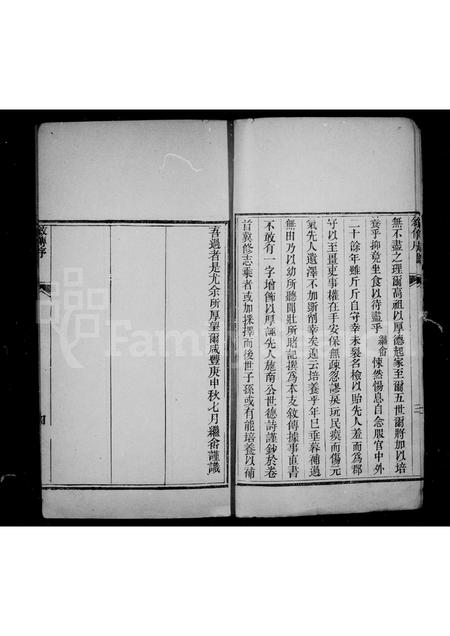 無不盡之理爾高祖以厚德起家至爾五世爾將加以培
養乎抑竟坐食以待盡乎繼畬悚然惕息自念服官中外
二十餘年雖斤斤自守幸未裂名檢以貽先人羞而為郡
守以至畺吏事權在手安保無疎忽謬戾玩民瘼而傷元
氣先人遺澤不加斲削幸矣遑云培養乎年已垂暮補過
無由乃以幼所聽聞壯所睹記撰為本支敘傳據事直書
不敢有一字增飾以厚誣先人施南公世德詩謹鈔於卷
首冀修志乘者或加採擇而後世子孫或有能培養以補
三
吾過者是尤余所厚望爾咸豐庚申秋七月繼畬謹識
敘傳序
四